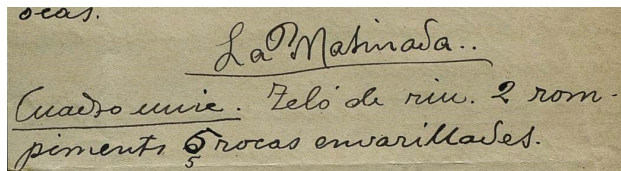 ocas.
La Matinada..
Cuadro unic. Teló de riu. 2 rom-
piments 5 rocas envarillades.
5